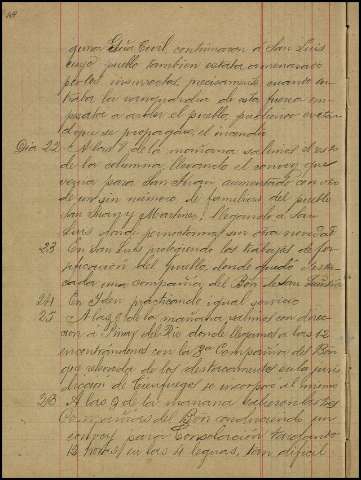 guna Guia Civil, continuaron á San Luis
cuyo pueblo tambien estaba amenazado
por los insurrectos, precisamente cuando en-
traba la vanguardia de esta fuerza em-
pezaba á arder el pueblo, pudiendo evitar
el que se propagase el incendio
Dia 22 A las 7 de la mañana salimos el resto
de la columna, llevando el convoy que
venia para San Juan, aumentado con
de un sin número de familias del pueblo
San Juan y Martinez, llegando á San
Luis donde pernoctamos sin otra novedad
23 En San Luis protegiendo los trabajos de for-
tificacion del pueblo, donde quedó desta-
cada una compañia del Bon de San Quintin
24 En Yden practicando igual servicio
25 A las 6 de la mañana salimos con direc-
cion á Pinar del Rio donde llegamos á las 12
encontrandonos con la 3ª Compañia del Bon
que relevada de los destacamentos en la juris-
diccion de Cienfuegos se incorporó al mismo
26 A las 9 de la mañana salieron las tres
Compañias del Bon conduciendo un
convoy para Consolacion tardando
12 horas en las 4 leguas, tan dificil